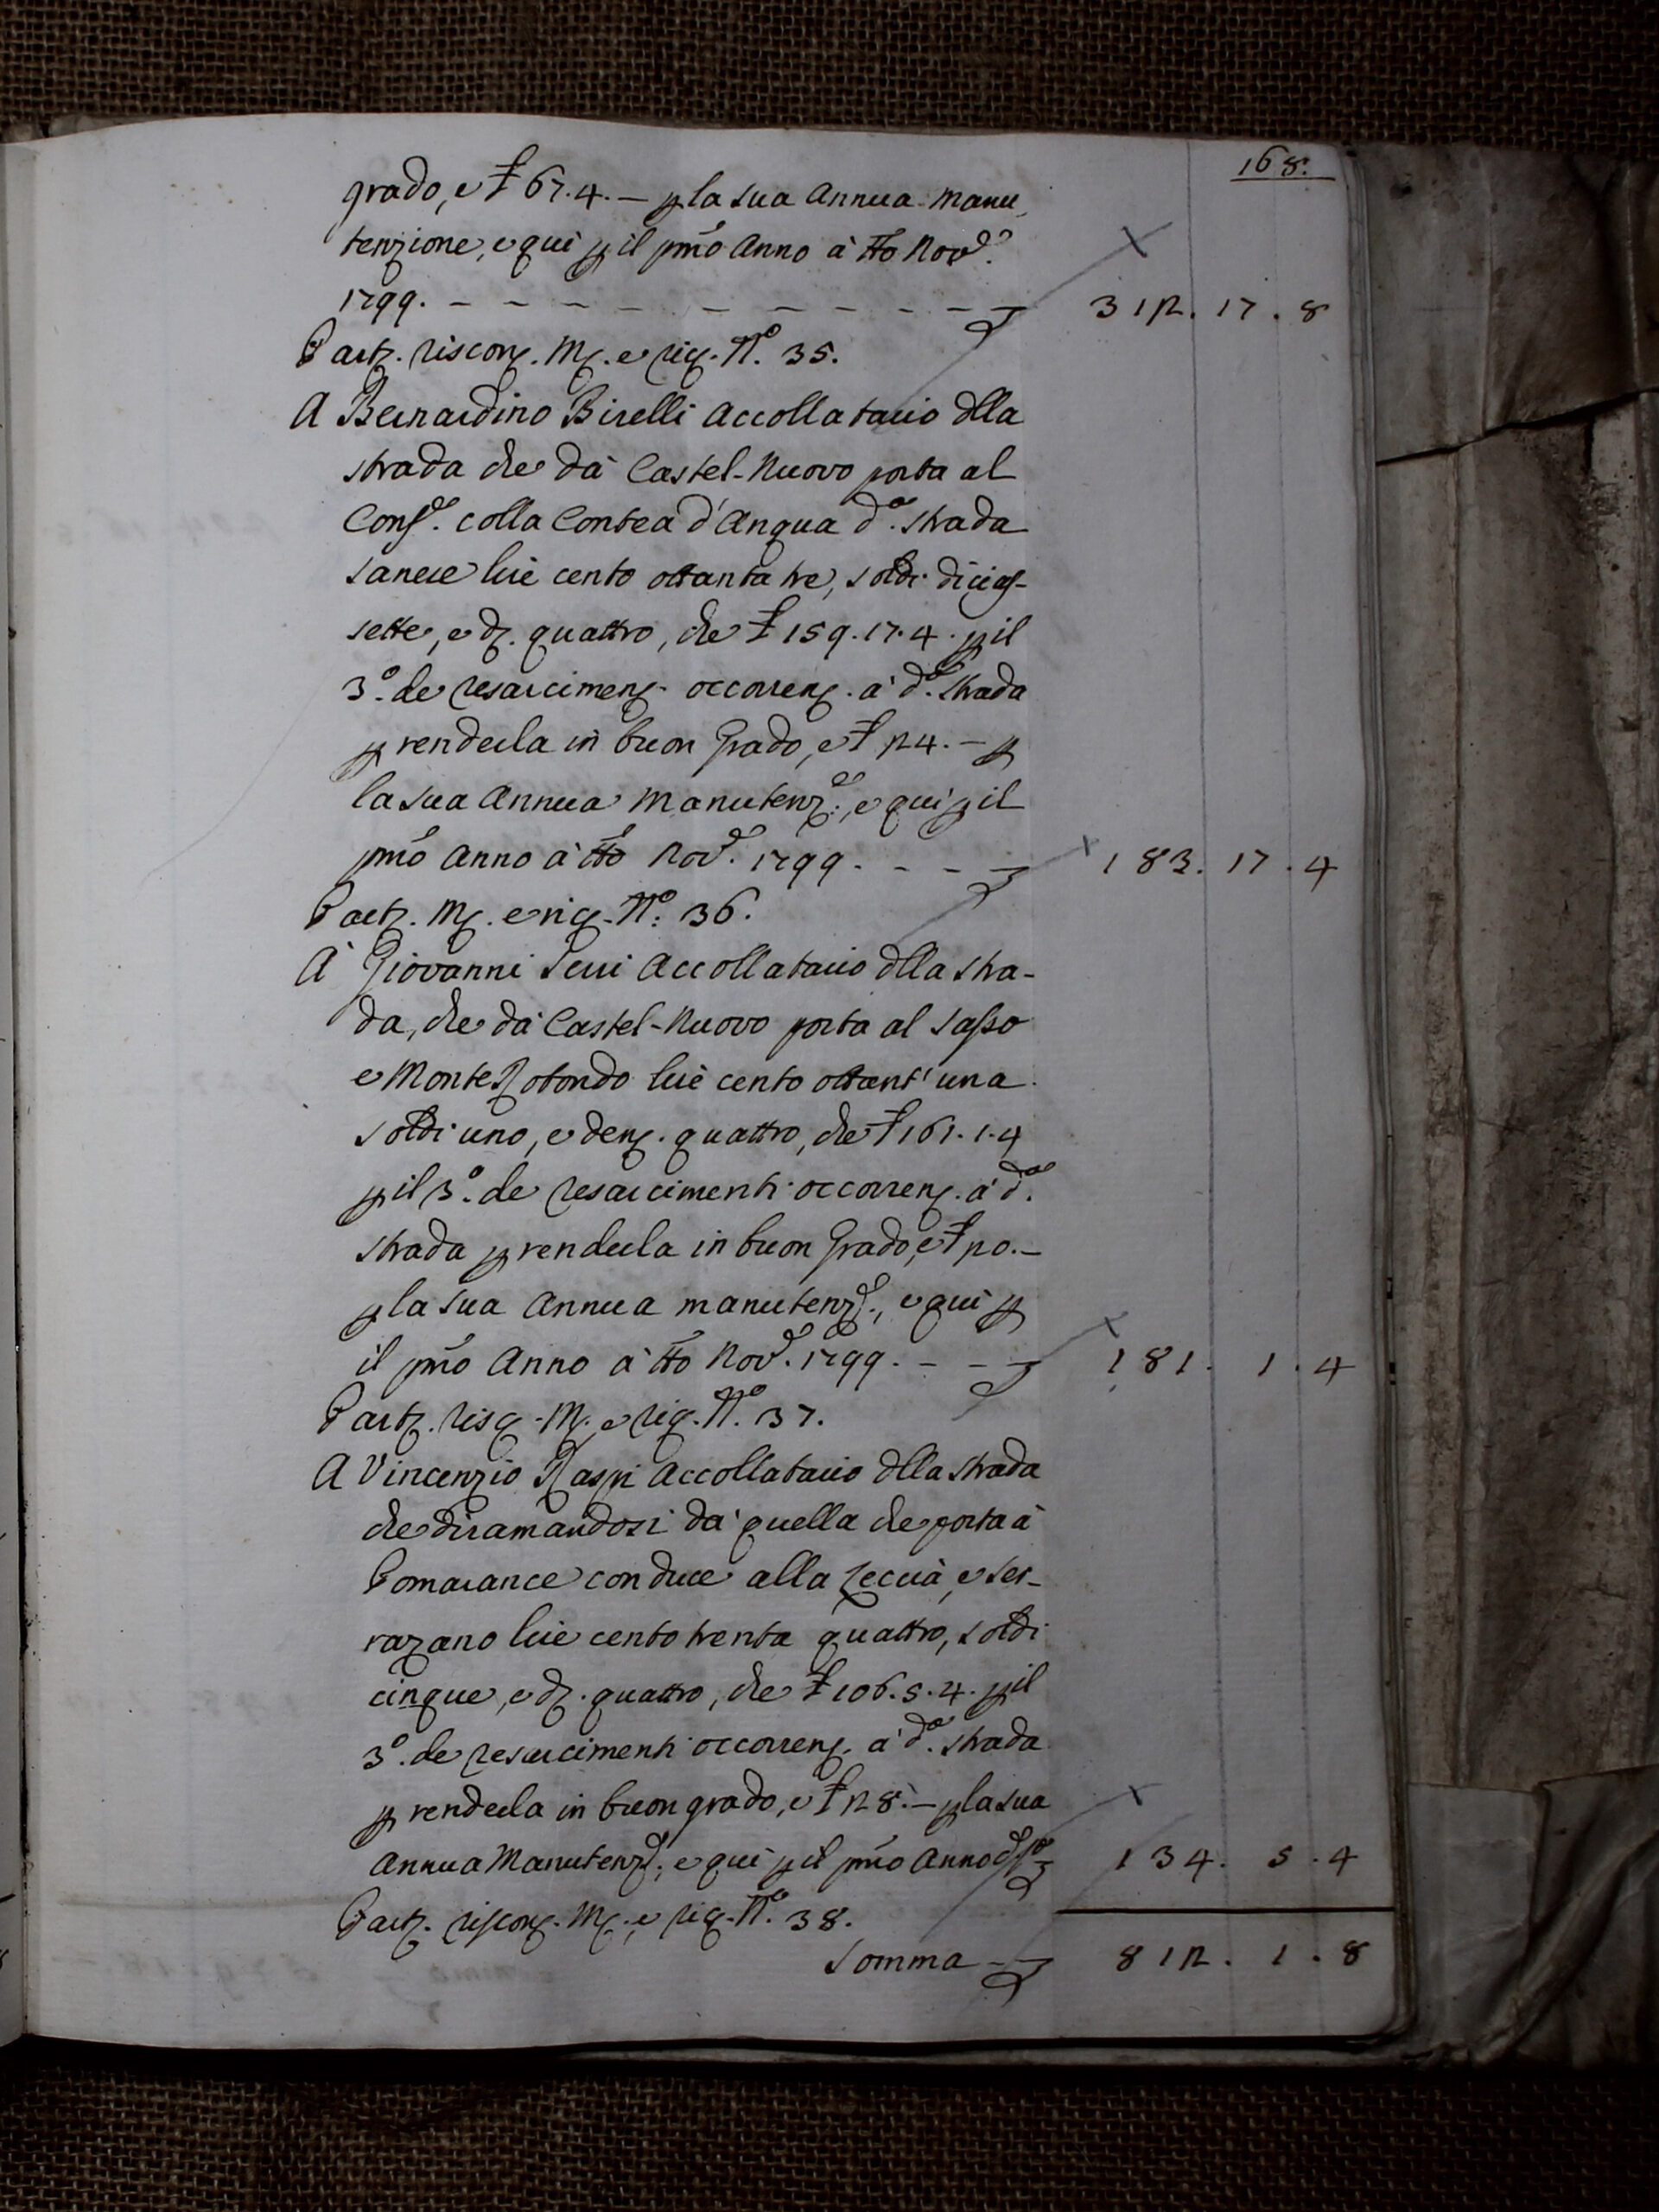 168.
grado, e £ 67.4.— p la sua Annua Manu-
tenzione, e qui p il pmo Anno à tto Nov.e
1799. — — — — — — — — — — 312. 17. 8
Part. riscon. M. e ric. N.o 35.
A Bernardino Birelli Accollatario dlla
strada che dà Castel-Nuovo porta al
Conf.e colla Contea d'Anqua d.a strada
sanese lire cento ottanta tre, soldi dicias-
sette, e d. quattro, che £ 159.17.4. p il
3.o de resarcimen. occorren. à d.a strada
p renderla in buon Grado, e £ 24.— p
la sua Annua Manutenz.e, e qui p il
pmo Anno à tto Nov.e 1799. — — — 183. 17. 4
Part. M. e ric. N.o 36.
A Giovanni Serri Accollatario dlla stra-
da, che dà Castel-Nuovo porta al Sasso
e Monte Rotondo lire cento ottant'una
soldi uno, e den. quattro, che £ 161.1.4
p il 3.o de resarcimenti occorren. à d.a
strada p renderla in buon Grado, e £ 20.—
p la sua Annua manutenz.e, e qui p
il pmo Anno à tto Nov.e 1799. — — — 181. 1. 4
Part. risc. M. e ric. N.o 37.
A Vincenzio Raspi Accollatario dlla strada
che diramandosi dà quella che porta à
Pomarance conduce alla Leccia, e Ser-
razano lire cento trenta quattro, soldi
cinque, e d. quattro, che £ 106.5.4. p il
3.o de resarcimenti occorren. à d.a strada
p renderla in buon grado, e £ 28.— p la sua
Annua Manutenz.e, e qui p il pmo Anno 134. 5. 4
Part. riscon. M. e ric. N.o 38.
Somma — 812. 1. 8